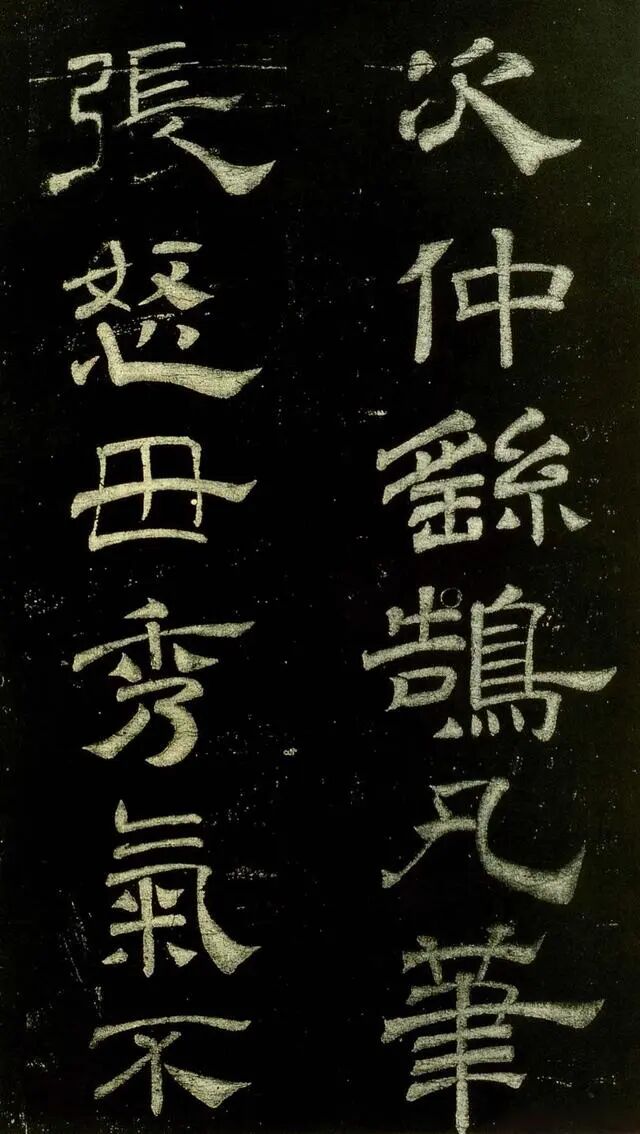 次仲繇鵠凡筆
張怒毋秀氣不